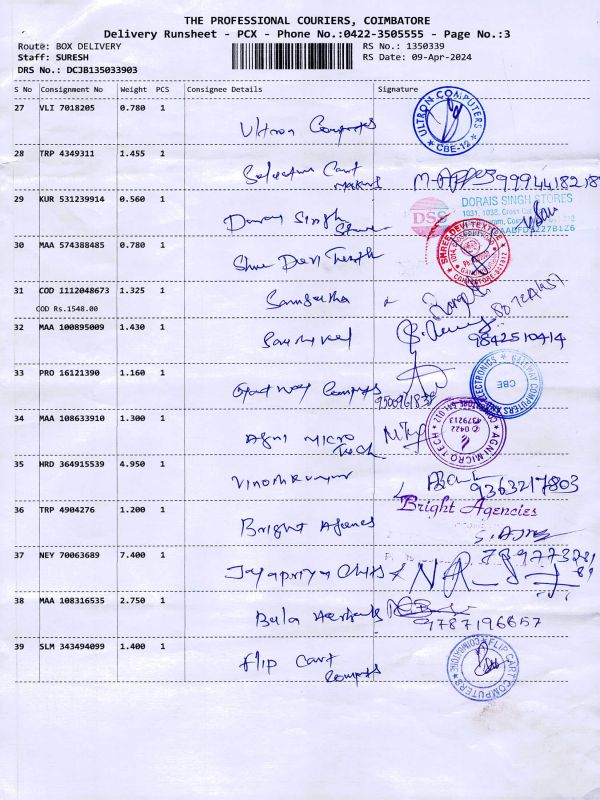 THE PROFESSIONAL COURIERS, COIMBATORE
Delivery Runsheet - PCX - Phone No.:0422-3505555 - Page No.:3
Route: BOX DELIVERY
RS No.: 1350339
Staff: SURESH
RS Date: 09-Apr-2024
DRS No.: DCJB135033903
S No Consignment No Weight PCS Consignee Details Signature
27 VLI 7018205 0.780 1
Ultron Computers
ULTRON COMPUTERS CBE-12
28 TRP 4349311 1.455 1
Selection Cart
29 KUR 531239914 0.560 1
Singh
DSS DORAIS SINGH STORES
30 MAA 574388485 0.780 1
Shree Devi Textile
SHREE DEVI TEXTILE
31 COD 1112048673 1.325 1
COD Rs.1548.00
32 MAA 100895009 1.430 1
9842510414
33 PRO 16121390 1.160 1
Computers
GATEWAY COMPUTERS AND ELECTRONICS CBE
34 MAA 108633910 1.300 1
Agni Micro
Tech
AGNI MICRO TECH
35 HRD 364915539 4.950 1
Vinothkumar
9363217803
36 TRP 4904276 1.200 1
Bright Agencies
Bright Agencies
37 NEY 70063689 7.400 1
Jayapriya Chits
38 MAA 108316535 2.750 1
Bala
9787196657
39 SLM 343494099 1.400 1
Flip Cart
Computers
FLIP CART COMPUTERS COIMBATORE